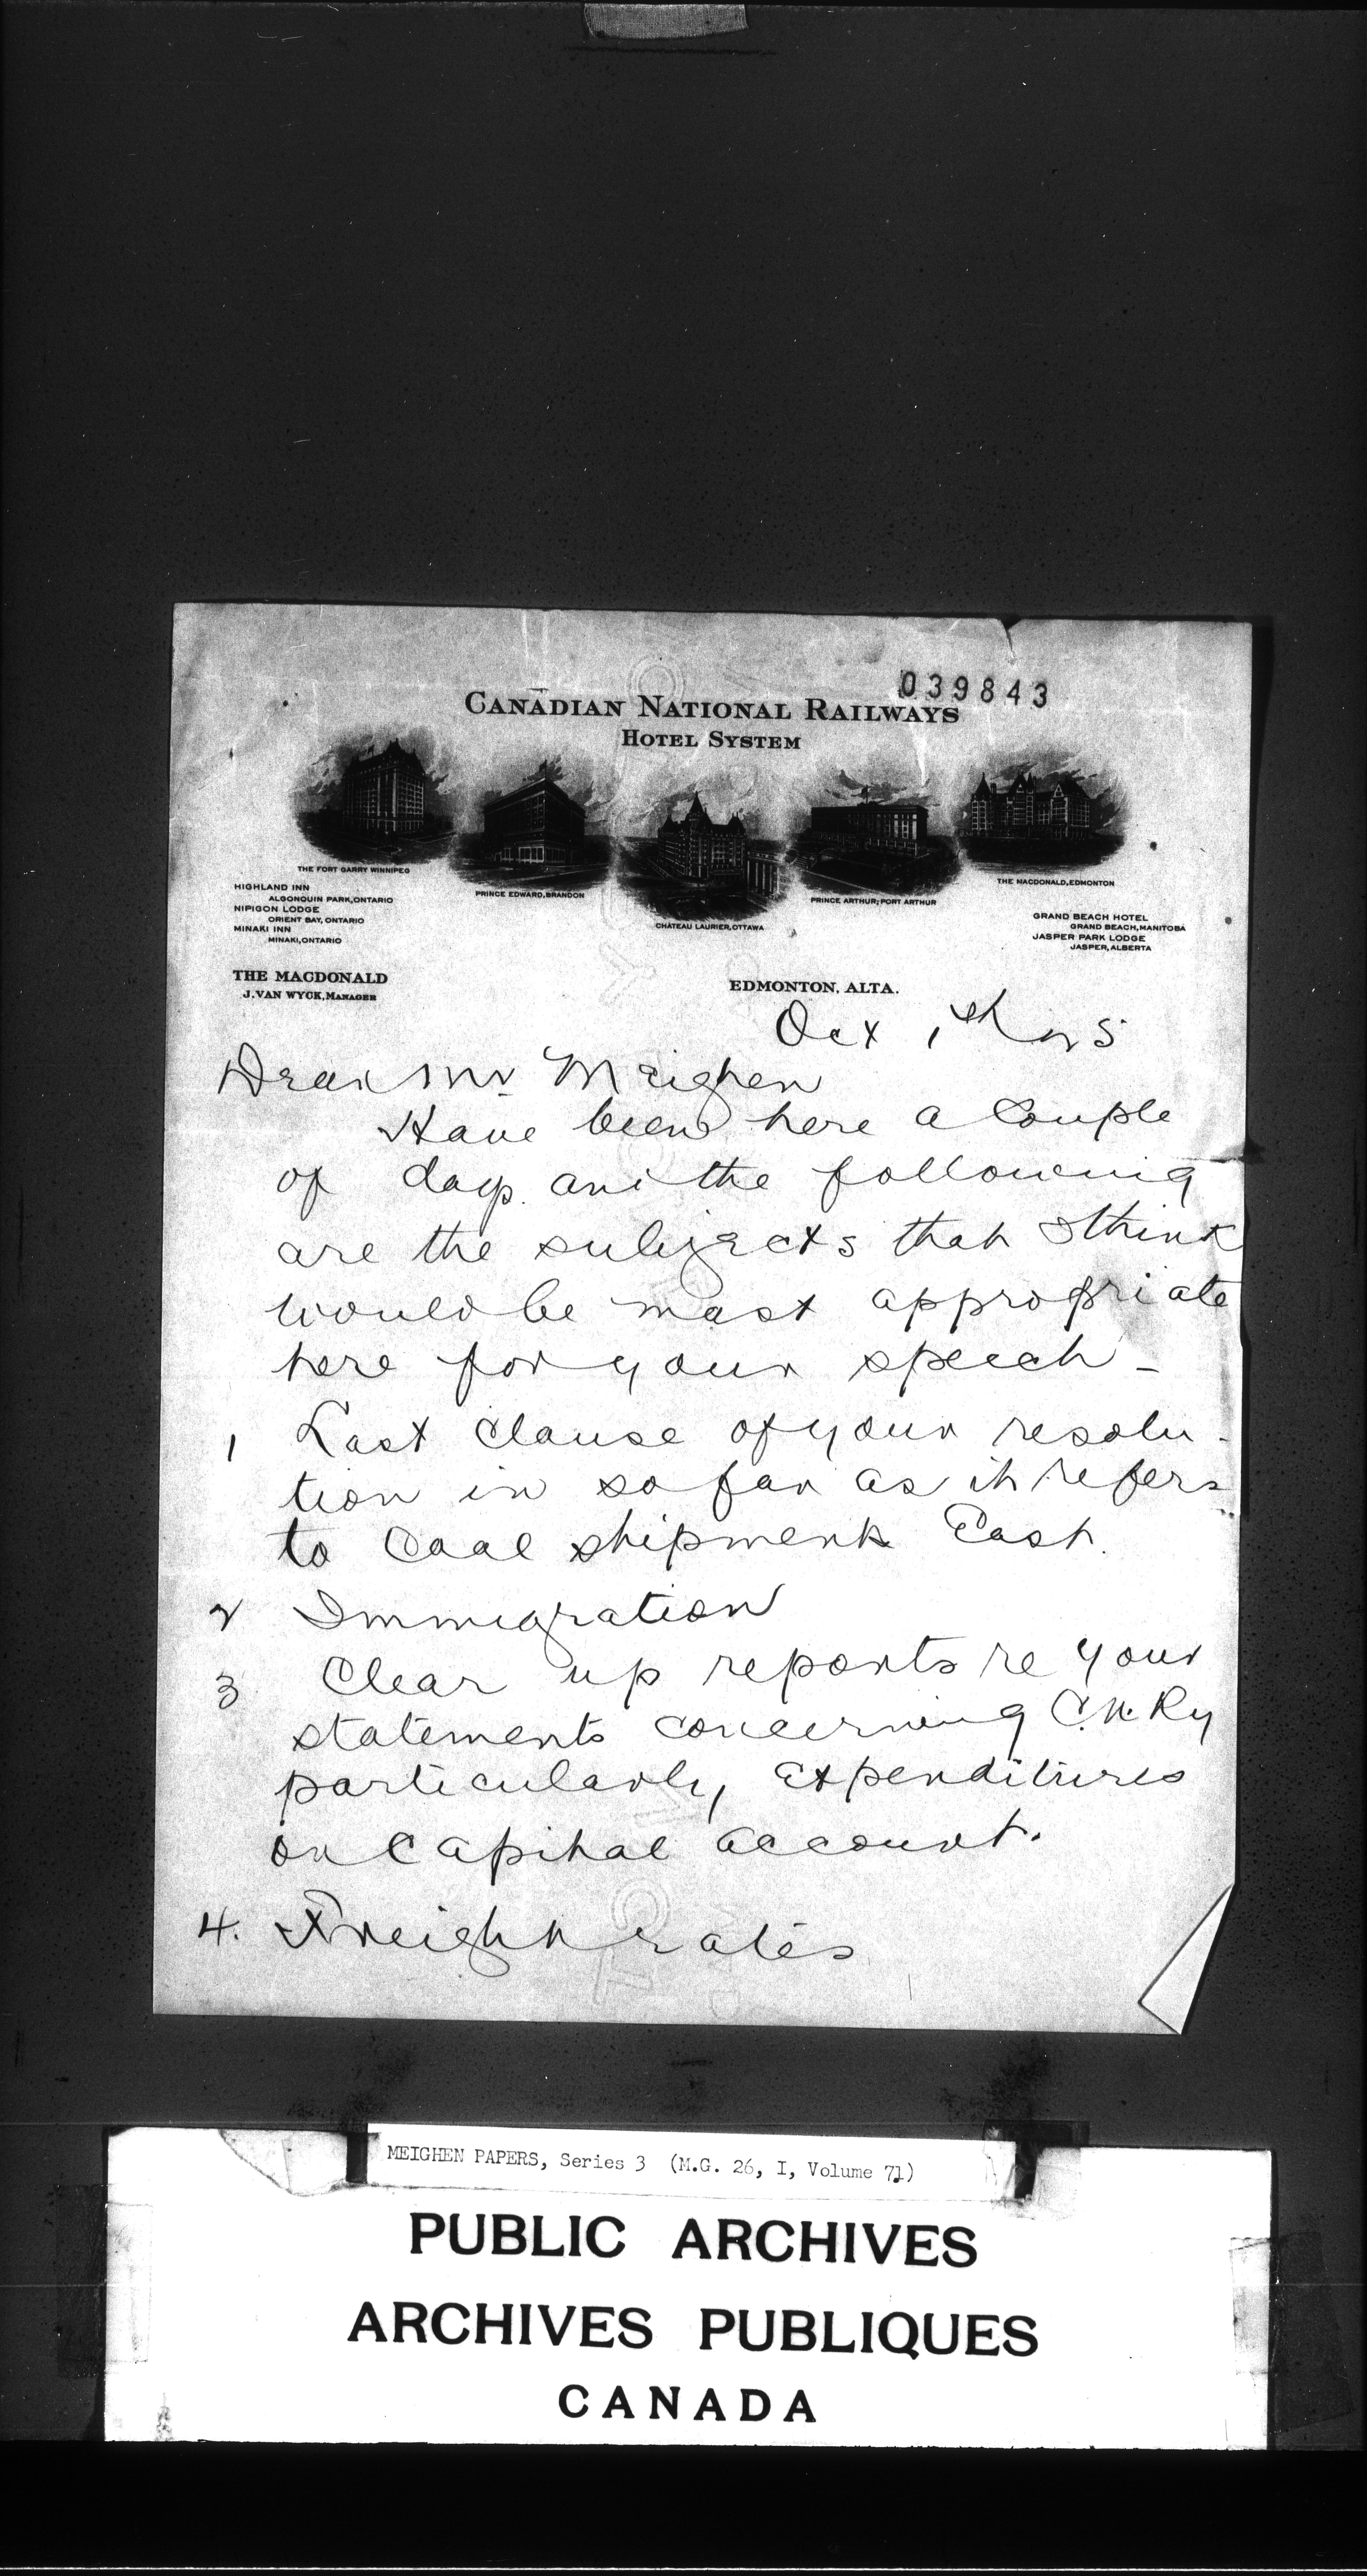 039843
CANADIAN NATIONAL RAILWAYS
HOTEL SYSTEM
THE FORT GARRY WINNIPEG
PRINCE EDWARD, BRANDON
CHATEAU LAURIER, OTTAWA
PRINCE ARTHUR, PORT ARTHUR
THE MACDONALD, EDMONTON
HIGHLAND INN
ALGONQUIN PARK, ONTARIO
NIPIGON LODGE
ORIENT BAY, ONTARIO
MINAKI INN
MINAKI, ONTARIO
GRAND BEACH HOTEL
GRAND BEACH, MANITOBA
JASPER PARK LODGE
JASPER, ALBERTA
THE MACDONALD
J. VAN WYCK, MANAGER
EDMONTON, ALTA.
Oct 1st 25
Dear Mr Meighen
Have been here a couple
of days and the following
are the subjects that I think
would be most appropriate
here for your speech -
1 Last clause of your resolu-
tion in so far as it refers
to Coal shipments East.
2 Immigration
3 Clear up reports re your
statements concerning C.N.Ry
particularly Expenditures
on Capital account.
4. Freight rates
MEIGHEN PAPERS, Series 3 (M.G. 26, I, Volume 71)
PUBLIC ARCHIVES
ARCHIVES PUBLIQUES
CANADA